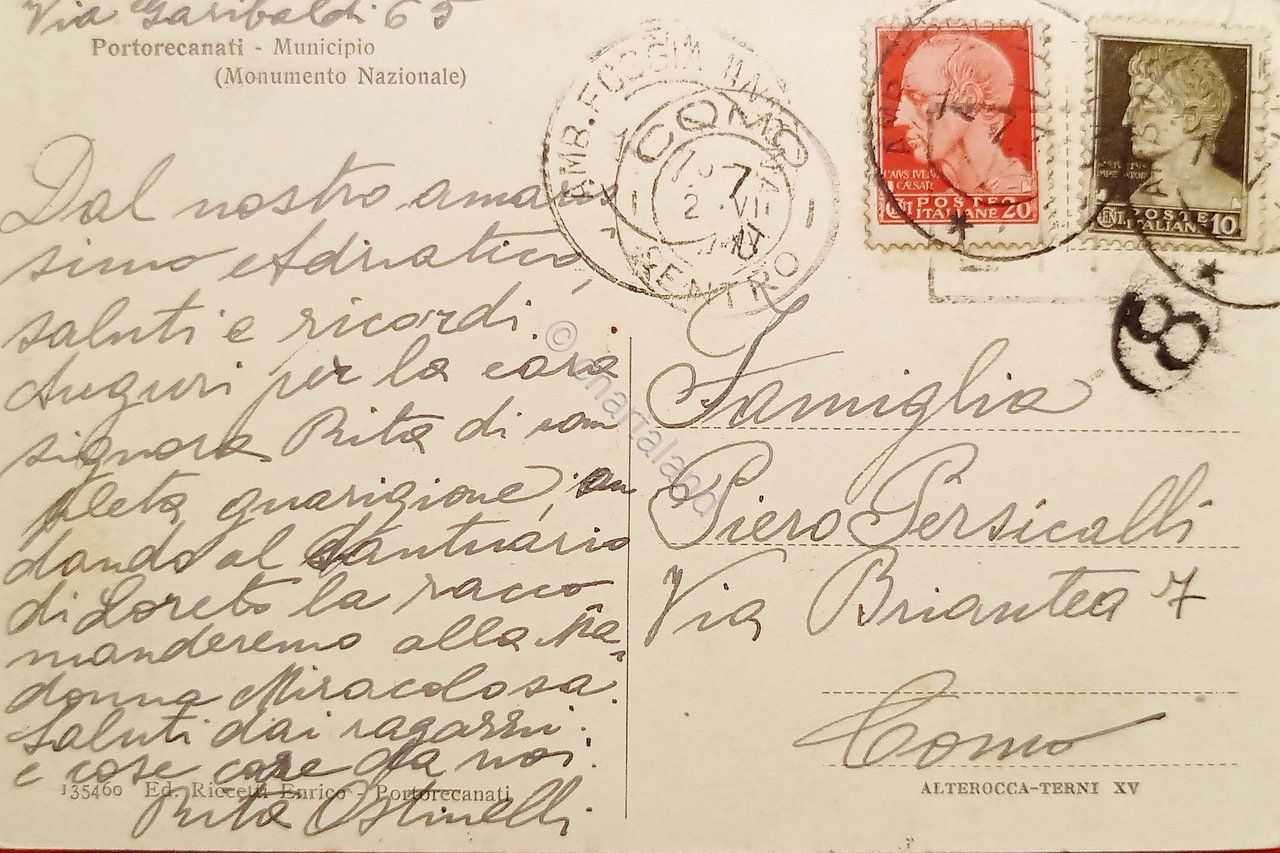 Via Garibaldi 65
Portorecanati - Municipio
(Monumento Nazionale)
Dal nostro amaris
simo Adriatico,
saluti e ricordi.
Auguri per la cara
signora Rita di com
pleta guarigione, an
dando al Santuario
di Loreto la racco
manderemo alla Ma=
donna Miracolosa.
Saluti dai ragazzi.
e cose care da noi.
Rita Ostinelli
135460 Ed. Riccetti Enrico - Portorecanati
AMB. FOGGIA
COMO
CENTRO
CAIVS IVLIVS
CAESAR
CENT. POSTE ITALIANE 20
IMPERATOR
CENT. POSTE ITALIANE 10
8
Famiglia
Piero Persicalli
Via Briantea 7
Como
ALTEROCCA-TERNI XV
© chartaland